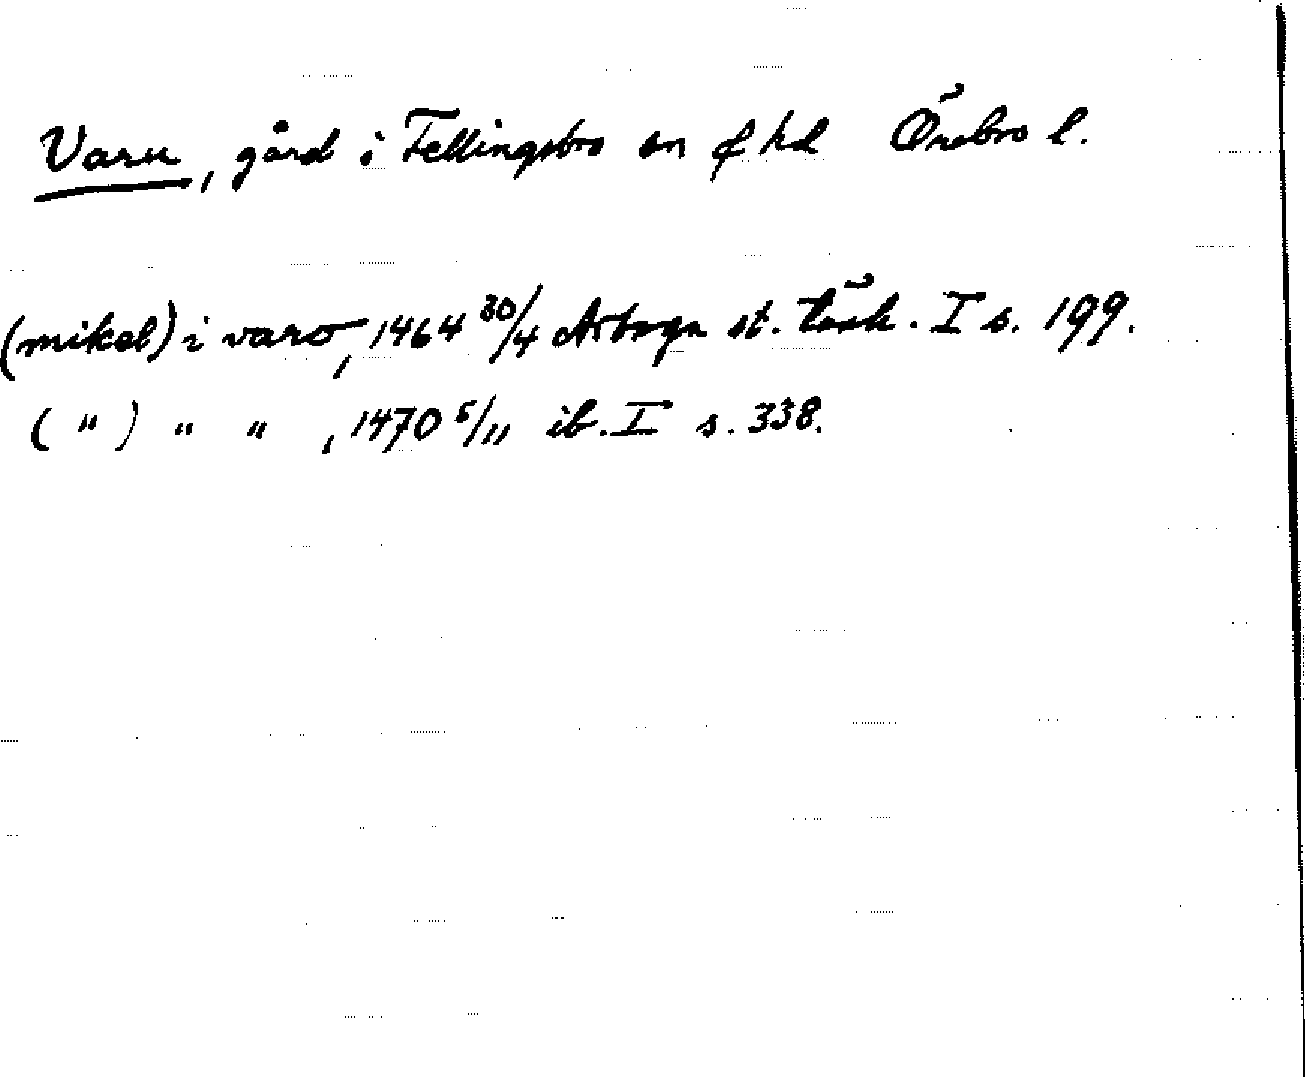 Varu, gård i Fellingsbro sn o hd Örebro l.
(mikel) i varo, 1464 30/4 Arboga st. tänk. I s. 199.
( " ) " " , 1470 5/11 ib. I s. 338.